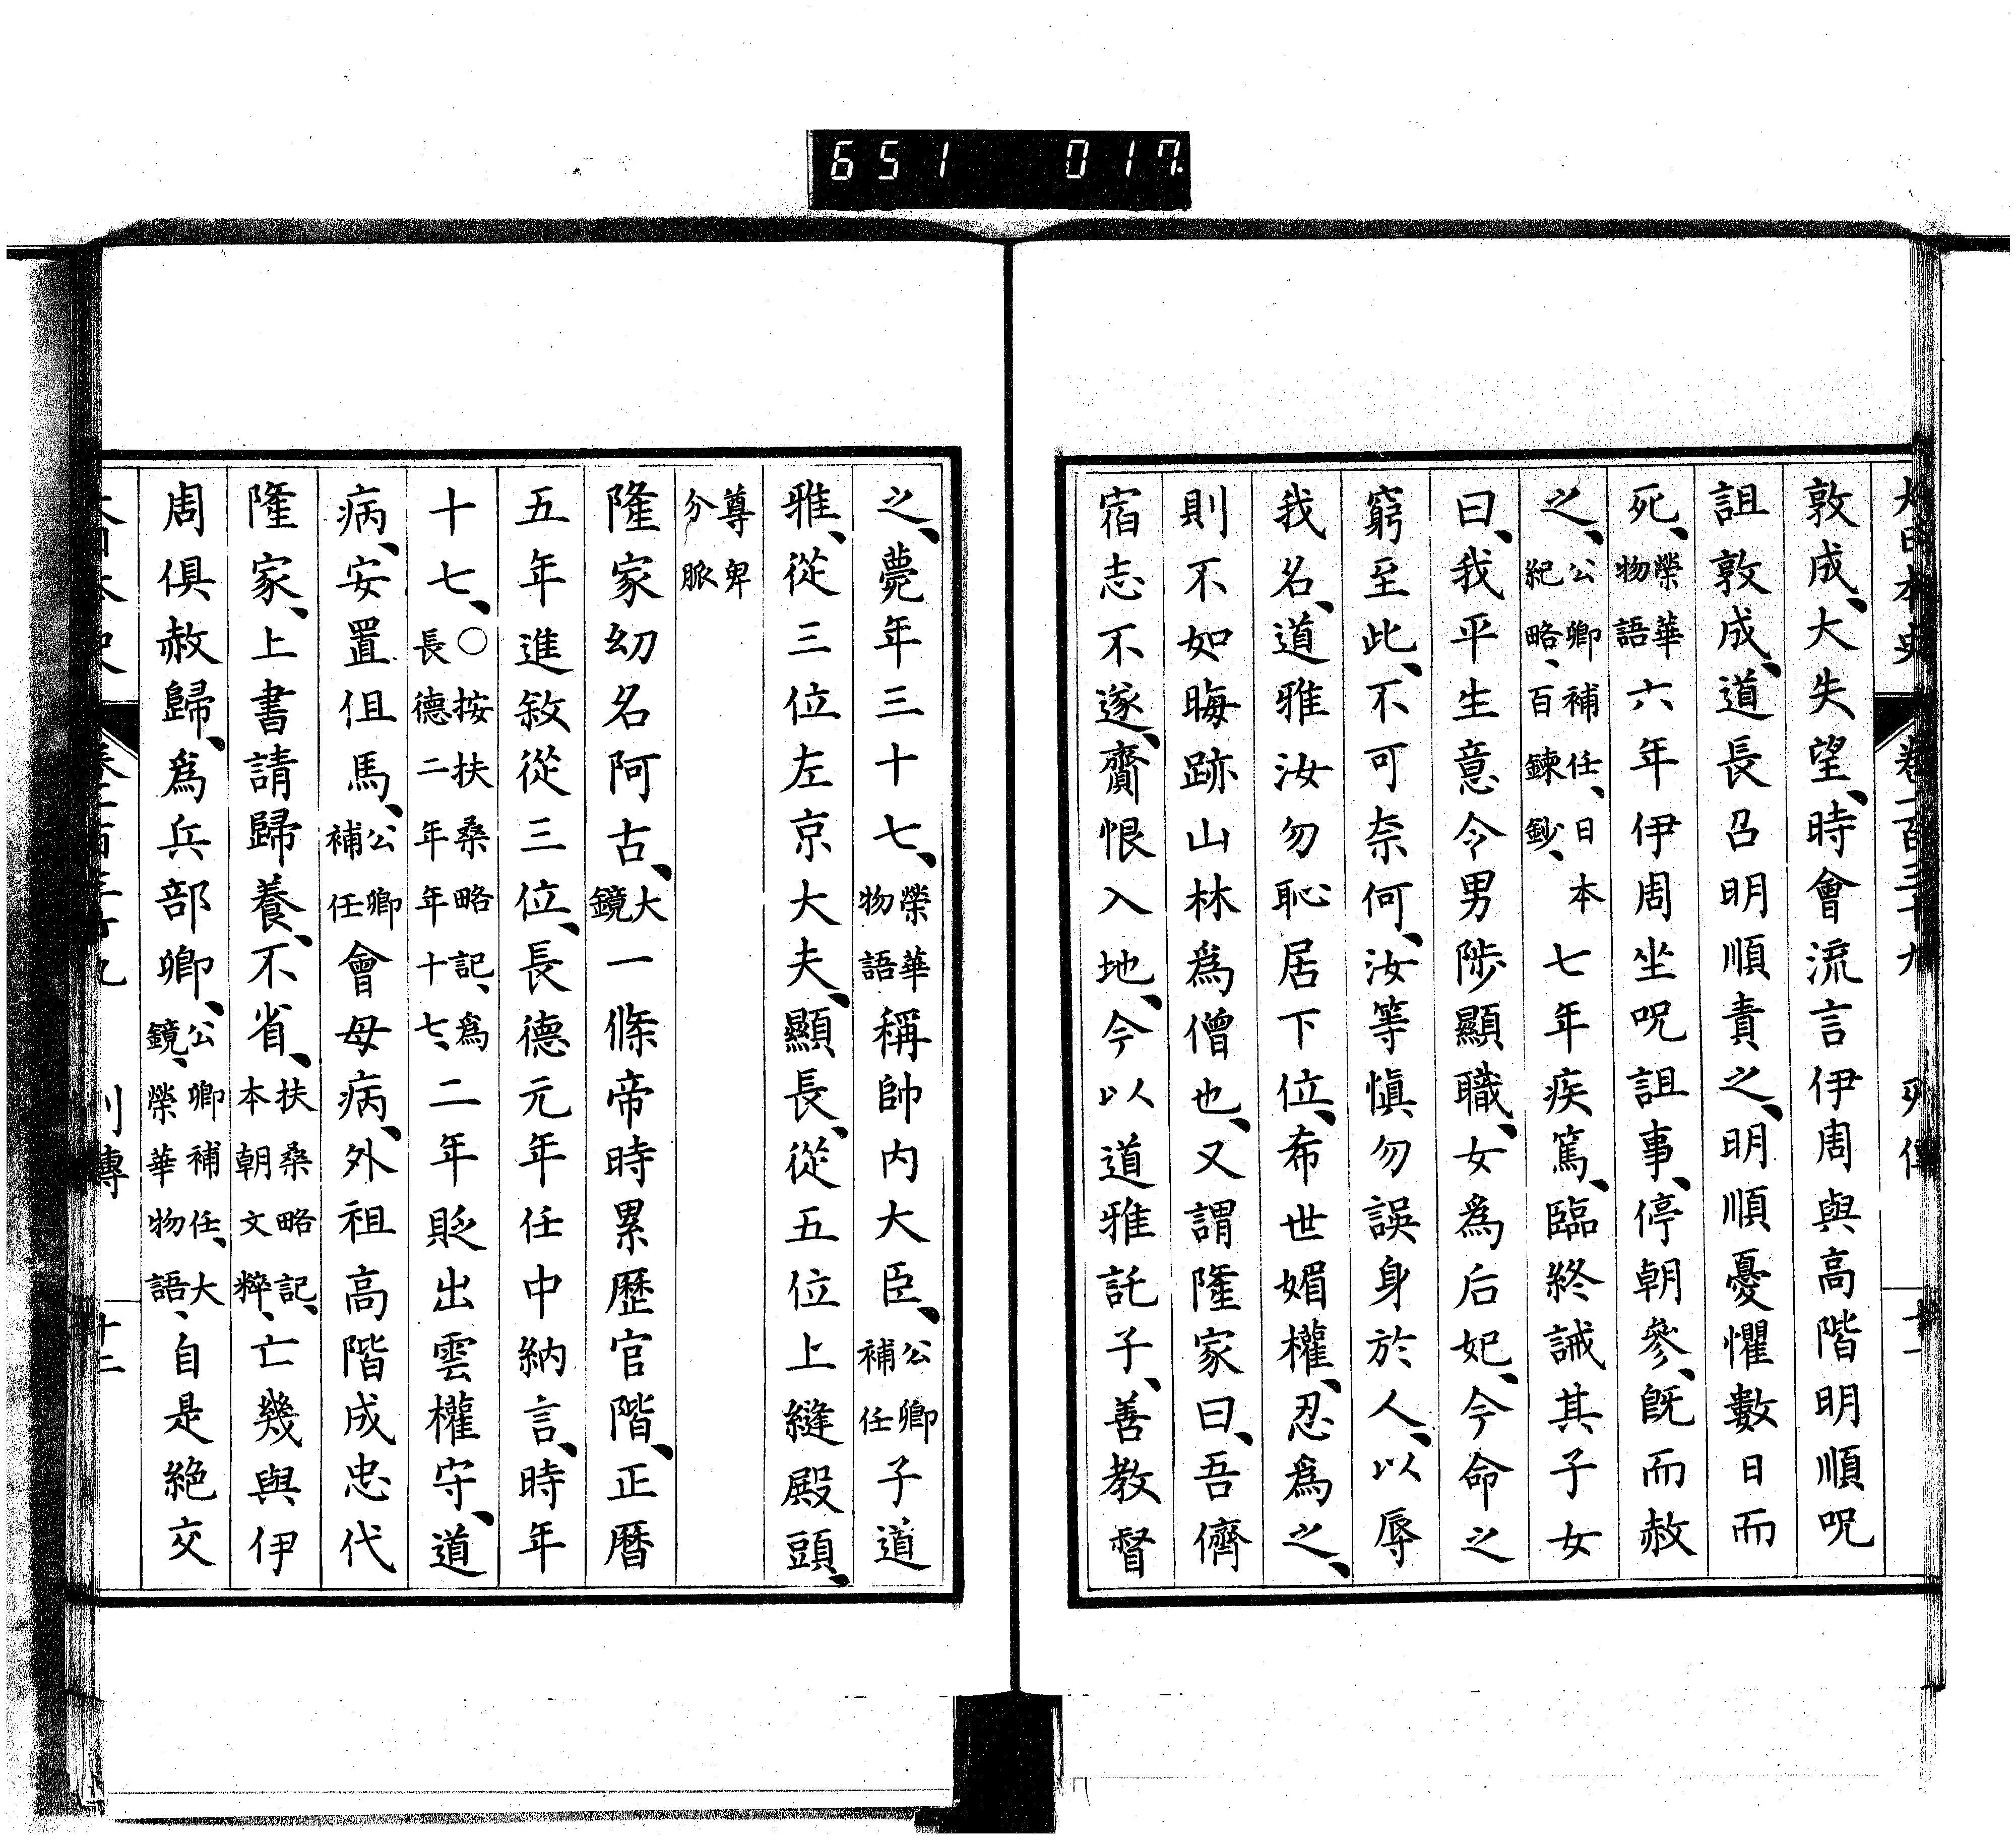 651 017
大日本史 卷一百三十九 列傳 十一
敦成、大失望、時會流言伊周與高階明順呪
詛敦成、道長召明順責之、明順憂懼數日而
死、榮華物語六年伊周坐呪詛事、停朝參、既而赦
之、公卿補任、日本紀略、百鍊鈔、七年疾篤、臨終誡其子女
曰、我平生意令男陟顯職、女爲后妃、今命之
窮至此、不可奈何、汝等愼勿誤身於人、以辱
我名、道雅汝勿恥居下位、希世媚權、忍爲之、
則不如晦跡山林爲僧也、又謂隆家曰、吾儕
宿志不遂、齎恨入地、今以道雅託子、善教督
之、薨年三十七、榮華物語稱帥内大臣、公卿補任子道
雅、從三位左京大夫、顯長、從五位上縫殿頭、
尊卑分脈
隆家幼名阿古、大鏡一條帝時累歷官階、正曆
五年進敘從三位、長德元年任中納言、時年
十七、○按扶桑略記、爲長德二年年十七、二年貶出雲權守、道
病、安置但馬、公卿補任會母病、外祖高階成忠代
隆家、上書請歸養、不省、扶桑略記、本朝文粹、亡幾與伊
周俱赦歸、爲兵部卿、公卿補任、大鏡、榮華物語、自是絕交
大日本史 卷一百三十九 列傳 十二